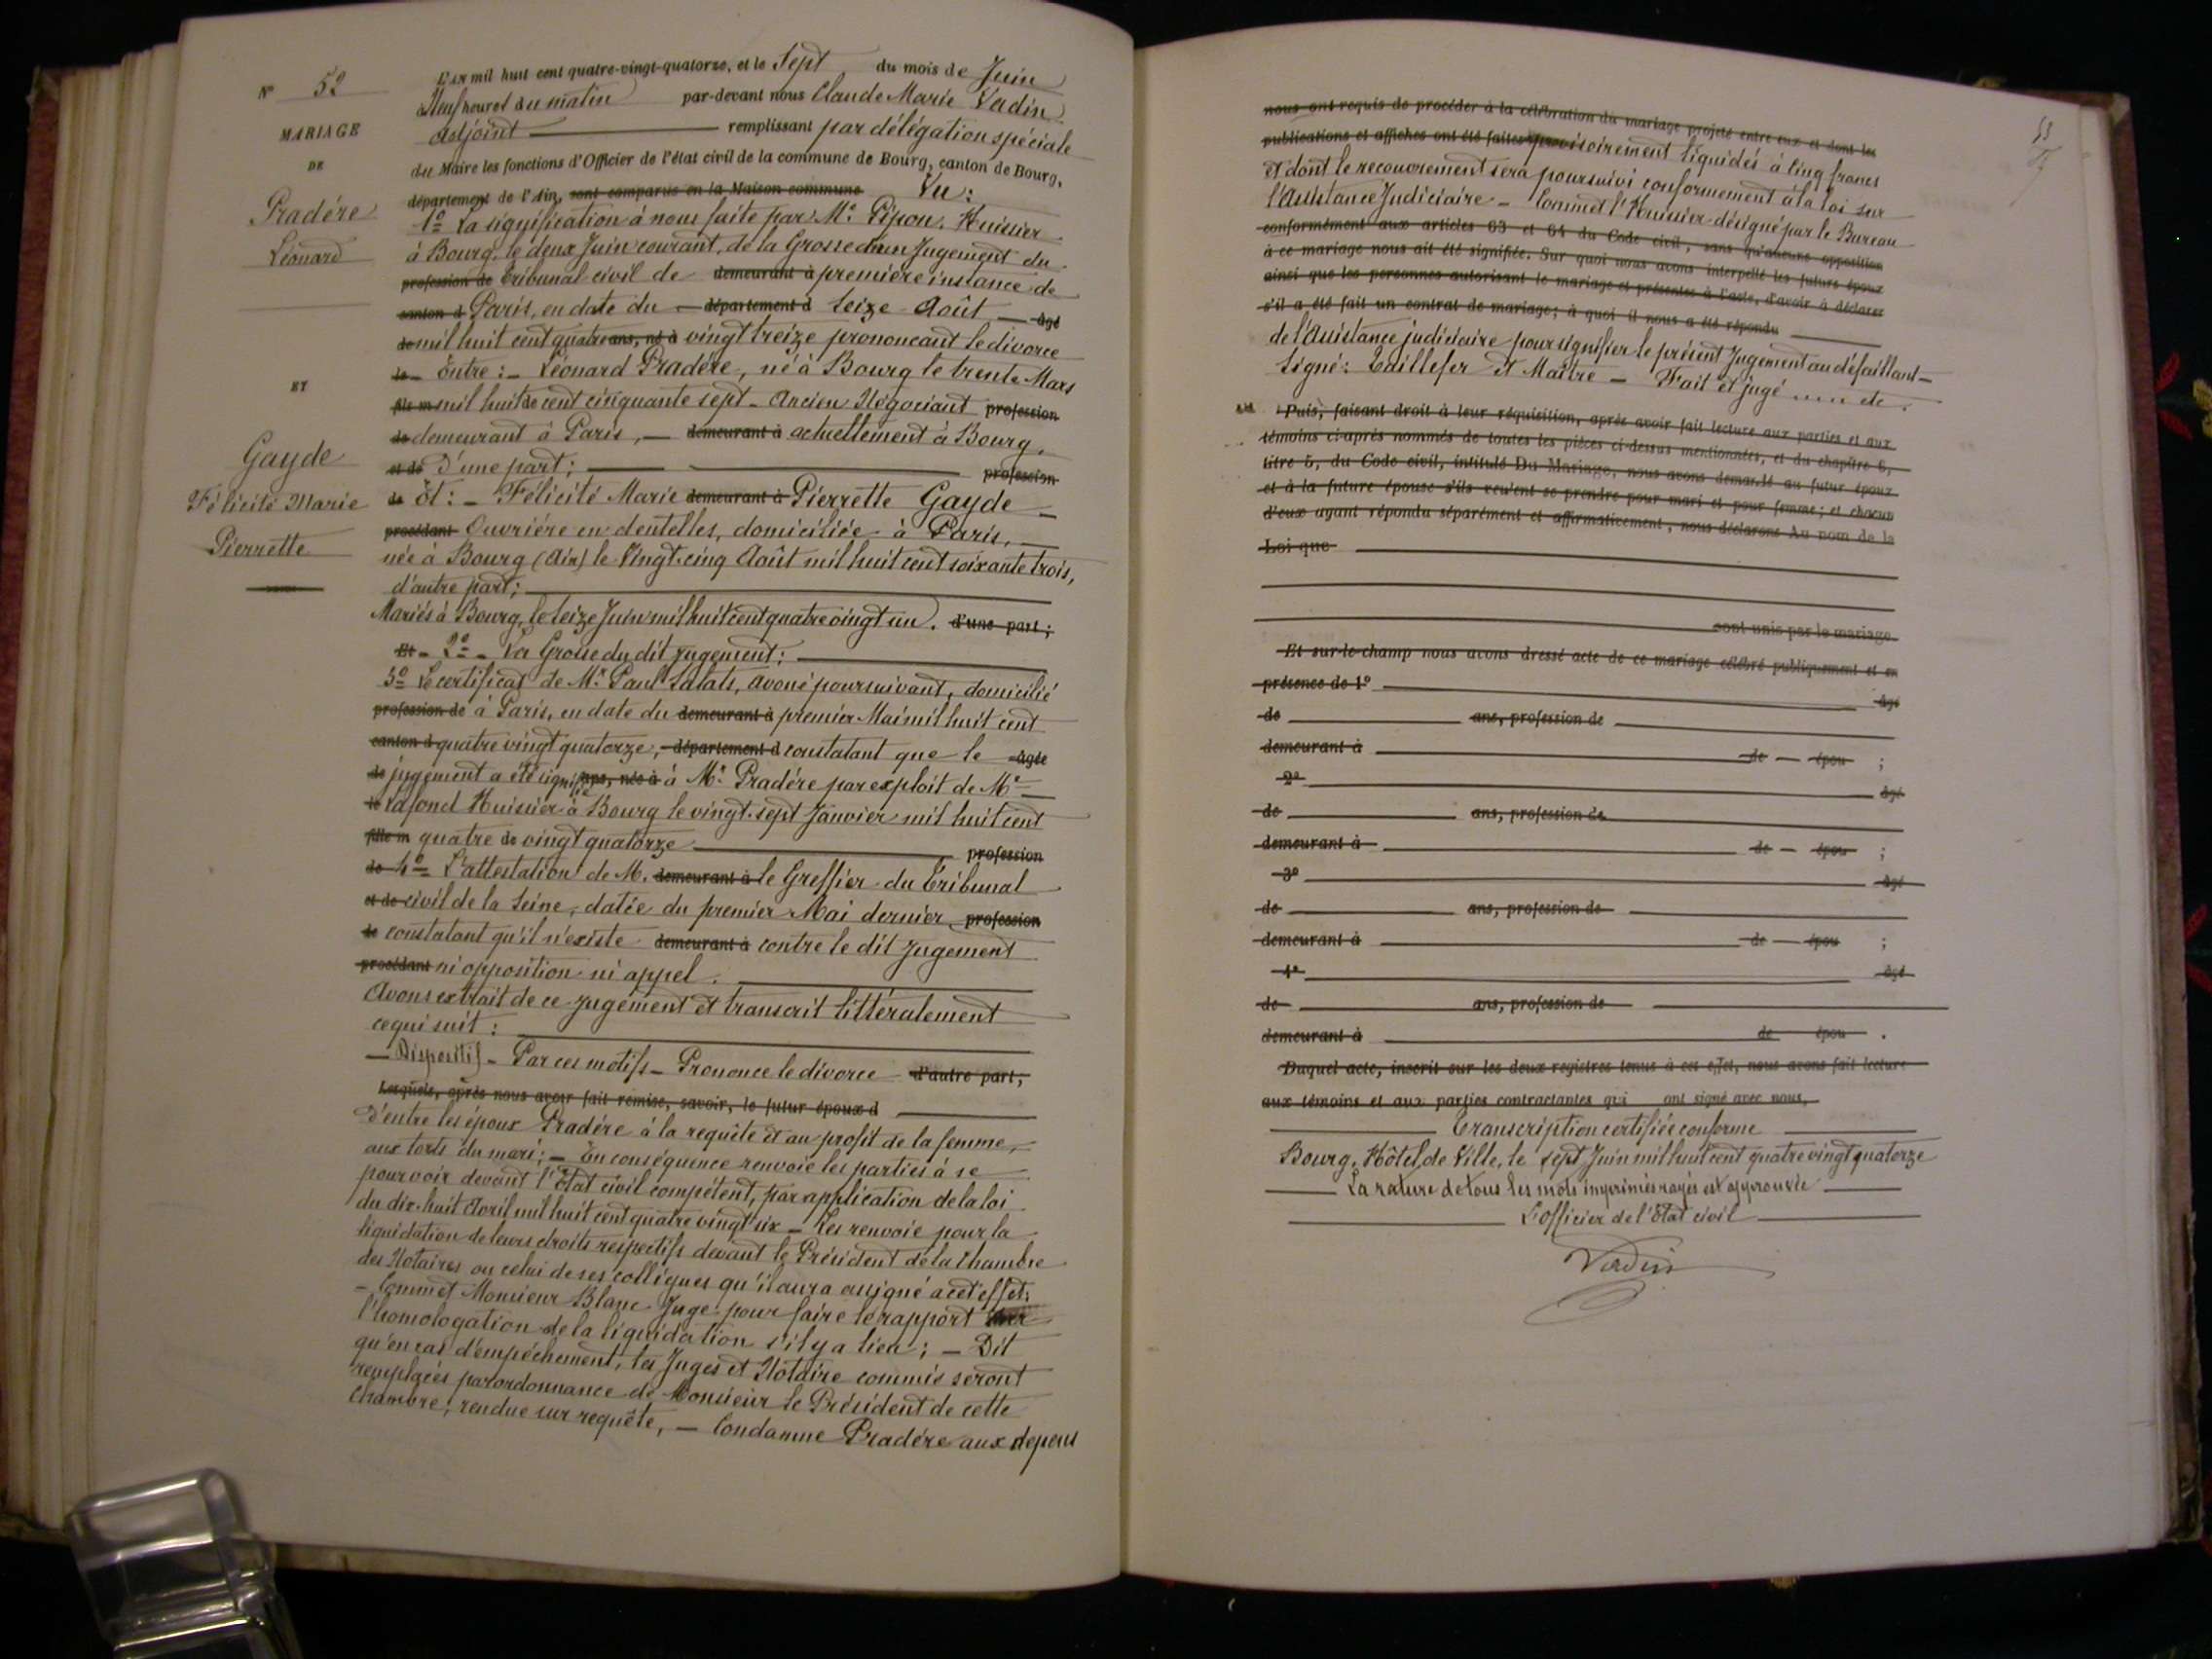 N° 52
MARIAGE
DE
Pradére
Léonard
ET
Gayde
Félicité Marie
Pierrette
L'AN mil huit cent quatre-vingt-quatorze, et le Sept du mois de Juin
à Neuf heures du matin par-devant nous Claude Marie Verdin
adjoint remplissant par délégation spéciale
du Maire les fonctions d'Officier de l'état civil de la commune de Bourg, canton de Bourg,
département de l'Ain, sont comparus en la Maison commune Vu :
1° La signification à nous faite par Me Pépou, Huissier
à Bourg, le deux Juin courant, de la Grosse d'un Jugement du
profession de Tribunal civil de demeurant à première instance de
canton d Paris, en date du département d seize Août âgé
de mil huit cent quatre ans, né à vingt treize prononcant le divorce
le Entre : Léonard Pradére, né à Bourg le trente Mars
fils m mil huit de cent cinquante sept - Ancien Négociant profession
de demeurant à Paris, demeurant à actuellement à Bourg,
et de d'une part ; profession
de Et : Félicité Marie demeurant à Pierrette Gayde
procédant Ouvrière en dentelles, domiciliée à Paris,
née à Bourg (Ain) le Vingt-cinq Août mil huit cent soixante trois,
d'autre part ;
Mariés à Bourg, le seize Juin mil huit cent quatre vingt un. d'une part ;
Et - 2° - La Grosse du dit jugement ;
3° Le certificat de Me Paul Salats, avoué poursuivant, domicilié
profession de à Paris, en date du demeurant à premier Mai mil huit cent
canton d quatre vingt quatorze, département d constatant que le âgée
de jugement a été signifié ans, née à à Mr Pradére par exploit de Me
le Lafond Huissier à Bourg le vingt-sept Janvier mil huit cent
fille m quatre de vingt quatorze profession
de 4° L'attestation de M. demeurant à le Greffier du Tribunal
et de civil de la Seine, datée du premier Mai dernier, profession
de constatant qu'il n'existe demeurant à contre le dit jugement
procédant ni opposition ni appel.
Avons extrait de ce jugement et transcrit littéralement
ce qui suit :
Dispositif - Par ces motifs - Prononce le divorce d'autre part ;
Lesquels, après nous avoir fait remise, savoir, le futur époux d
d'entre les époux Pradére à la requête et au profit de la femme,
aux torts du mari ; - En conséquence renvoie les parties à se
pourvoir devant l'Etat civil compétent, par application de la loi
du dix-huit Avril mil huit cent quatre vingt six - Les renvoie pour la
liquidation de leurs droits respectifs devant le Président de la Chambre
des Notaires ou celui de ses collègues qu'il aura assigné à cet effet ;
- Commet Monsieur Blanc Juge pour faire le rapport sur
l'homologation de la liquidation s'il y a lieu ; - Dit
qu'en cas d'empêchement, les Juges et Notaire commis seront
remplacés par ordonnance de Monsieur le Président de cette
Chambre, rendue sur requête, - Condamne Pradére aux dépens
53
nous ont requis de procéder à la célébration du mariage projeté entre eux et dont les
publications et affiches ont été faites provisoirement liquidés à Cinq francs
et dont le recouvrement sera poursuivi conformement à la loi sur
l'Assistance Judiciaire - Commet l'Huissier désigné par le Bureau
conformément aux articles 63 et 64 du Code civil, sans qu'aucune opposition
à ce mariage nous ait été signifiée. Sur quoi nous avons interpellé les futurs époux
ainsi que les personnes autorisant le mariage et présentes à l'acte, d'avoir à déclarer
s'il a été fait un contrat de mariage ; à quoi il nous a été répondu
de l'Assistance judiciaire pour signifier le présent Jugement au défaillant -
Signé : Taillefer et Maitre - Fait et jugé .... etc.
Puis, faisant droit à leur réquisition, après avoir fait lecture aux parties et aux
témoins ci-après nommés de toutes les pièces ci-dessus mentionnées, et du chapitre 6,
titre 5, du Code civil, intitulé Du Mariage, nous avons demandé au futur époux
et à la future épouse s'ils veulent se prendre pour mari et pour femme ; et chacun
d'eux ayant répondu séparément et affirmativement, nous déclarons Au nom de la
Loi que
sont unis par le mariage
Et sur-le-champ nous avons dressé acte de ce mariage célébré publiquement et en
présence de 1° âgé
de ans, profession de
demeurant à de épou ;
2° âgé
de ans, profession de
demeurant à de épou ;
3° âgé
de ans, profession de
demeurant à de épou ;
4° âgé
de ans, profession de
demeurant à de épou .
Duquel acte, inscrit sur les deux registres tenus à cet effet, nous avons fait lecture
aux témoins et aux parties contractantes qui ont signé avec nous,
Transcription certifiée conforme
Bourg, Hôtel de Ville, le sept Juin mil huit cent quatre vingt quatorze
La rature de tous les mots imprimés rayés est approuvée
L'officier de l'Etat civil
Verdin